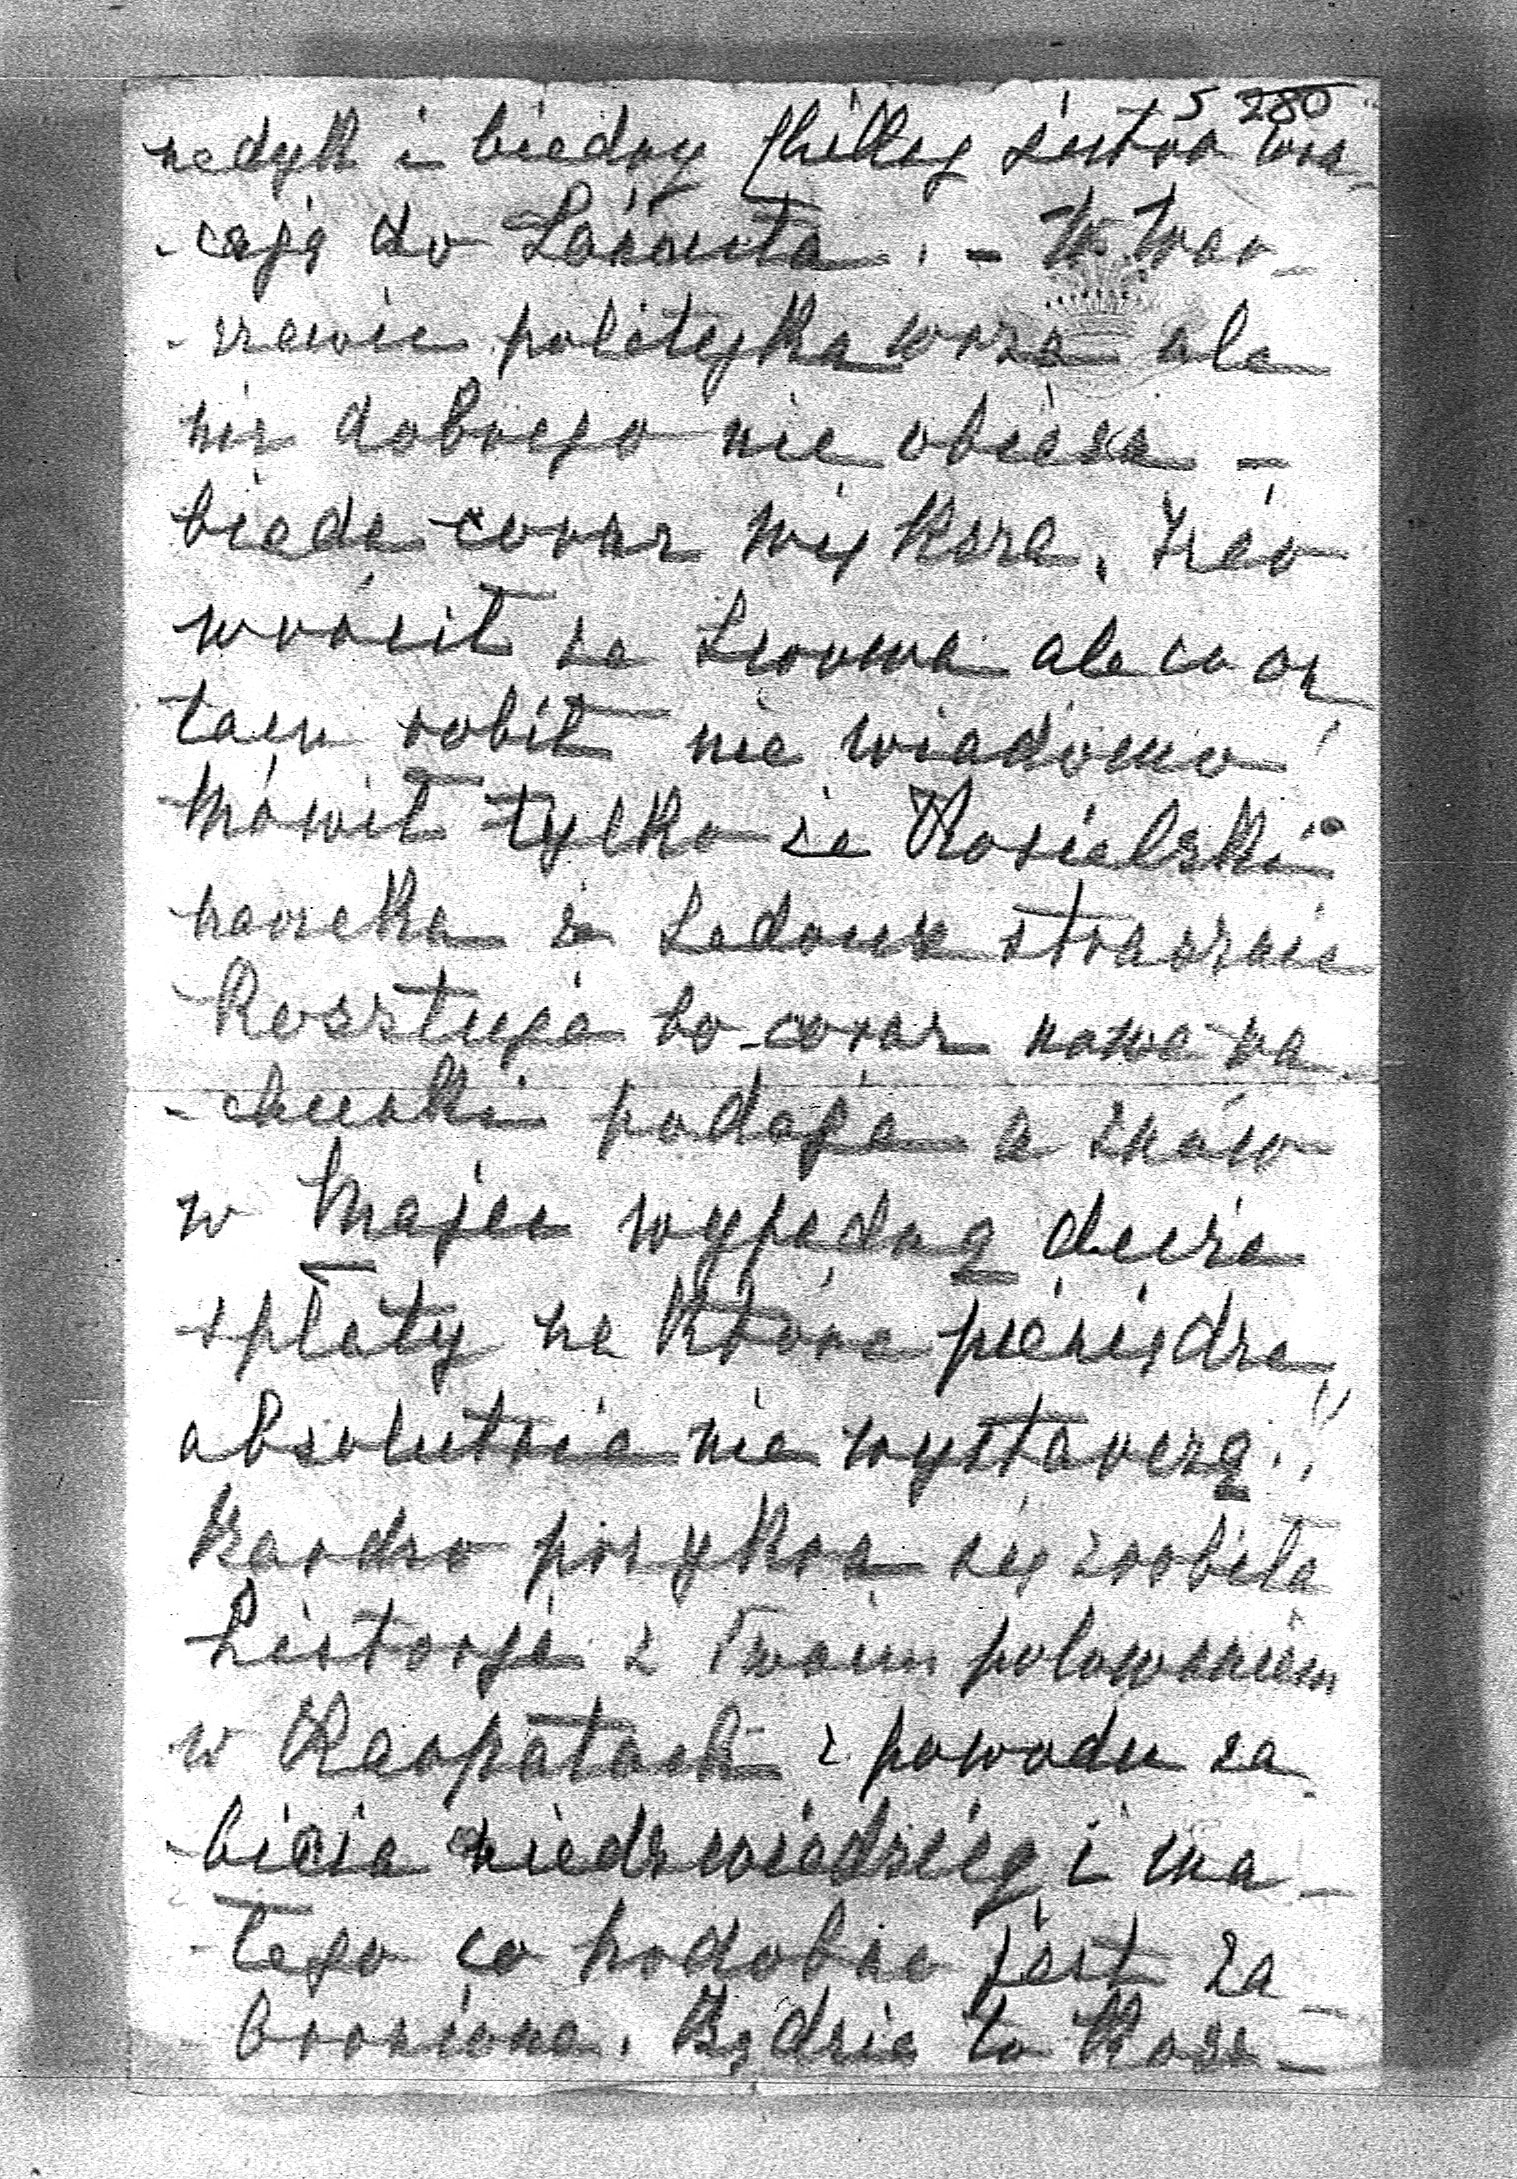 5 280
nedykt i biedny Philky jutro wra-
-cają do Łańcuta. - W War-
-szawie polityka wrze ale
nic dobrego nie obieca -
bieda coraz większa. Fréo
wrócił ze Lwowa ale co on
tam robił nie wiadomo!
Mówił tylko że Kosielski
narzeka że Ledoux strasznie
Kosztuje bo coraz nowe ra-
-chunki podaje a znów
w Maju wypadną duże
spłaty na które pieniądze
absolutnie nie wystarczą!!
Bardzo przykra się zrobiła
historja z Twoim polowaniem
w Karpatach z powodu za-
-bicia niedźwiedzicy i ma-
-łego co podobno jest za-
bronione. Będzie to Kosz-